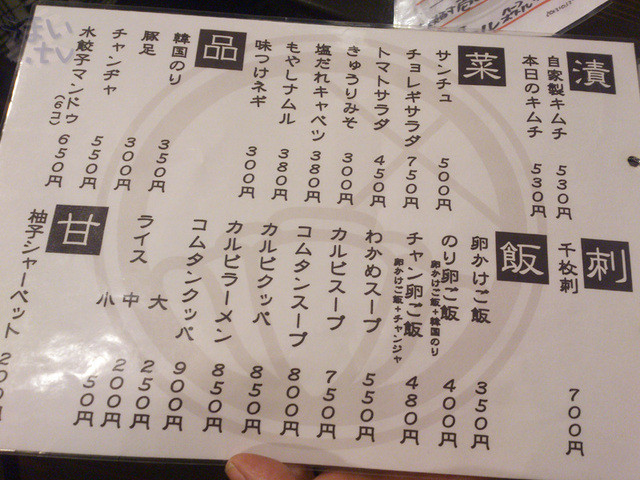 漬
自家製キムチ 530円
本日のキムチ 530円
菜
サンチュ 500円
チョレギサラダ 750円
トマトサラダ 450円
きゅうりみそ 300円
塩だれキャベツ 380円
もやしナムル 380円
味つけネギ 300円
品
韓国のり 350円
豚足 300円
チャンヂャ 550円
水餃子マンドゥ(6コ) 650円
刺
千枚刺 700円
飯
卵かけご飯 350円
のり卵ご飯 400円
卵かけご飯+韓国のり
チャン卵ご飯 480円
卵かけご飯+チャンジャ
わかめスープ 550円
カルビスープ 750円
コムタンスープ 800円
カルビクッパ 850円
カルビラーメン 850円
コムタンクッパ 900円
ライス 大 250円
中 200円
小 150円
甘
柚子シャーベット 200円